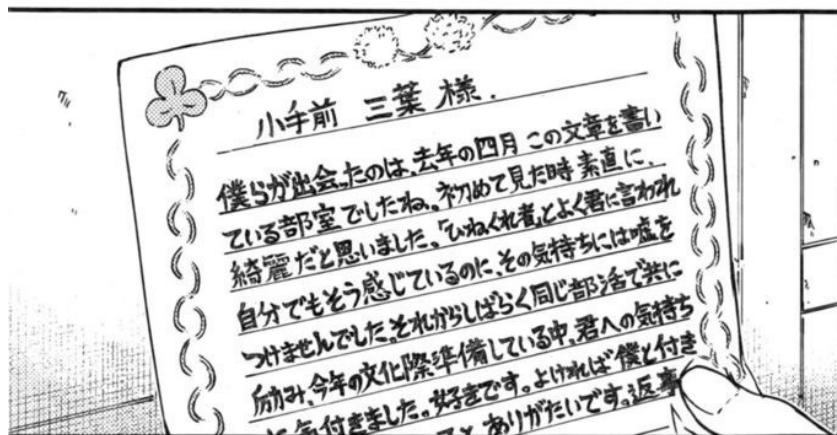 小手前 三葉 様.
僕らが出会ったのは、去年の四月 この文章を書い
ている部室でしたね。初めて見た時 素直に、
綺麗だと思いました。「ひねくれ者」とよく君に言われ
自分でもそう感じているのに、その気持ちには嘘を
つけませんでした。それからしばらく同じ部活で共に
励み、今年の文化際準備している中、君への気持ち
に気付きました。好きです。よければ僕と付き
ありがたいです。返事